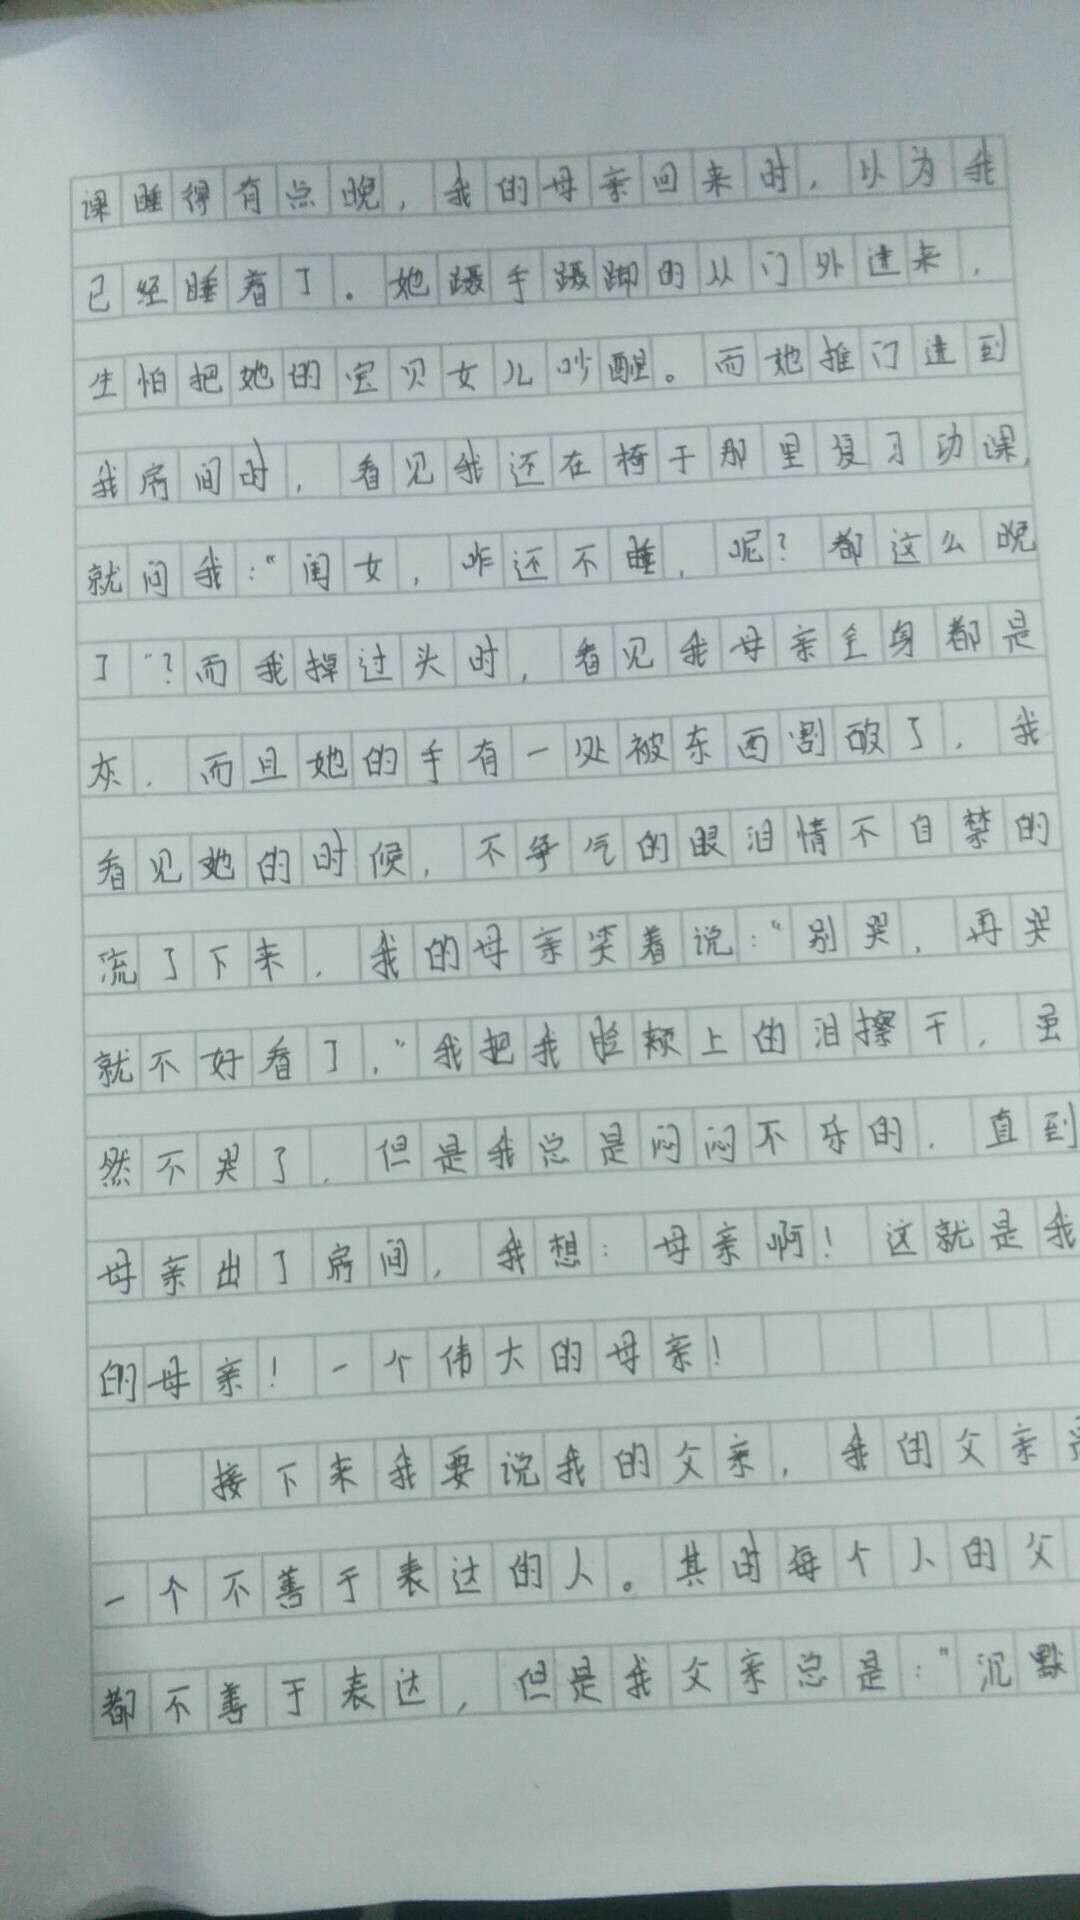 课睡得有点晚，我的母亲回来时，以为我
已经睡着了。她蹑手蹑脚的从门外进来，
生怕把她的宝贝女儿吵醒。而她推门进到
我房间时，看见我还在椅子那里复习功课，
就问我：“闺女，咋还不睡，呢？都这么晚
了”？而我掉过头时，看见我母亲全身都是
灰，而且她的手有一处被东西割破了，我
看见她的时候，不争气的眼泪情不自禁的
流了下来，我的母亲笑着说：“别哭，再哭
就不好看了，”我把我脸颊上的泪擦干，虽
然不哭了，但是我总是闷闷不乐的，直到
母亲出了房间，我想：母亲啊！这就是我
的母亲！一个伟大的母亲！
接下来我要说我的父亲，我的父亲是
一个不善于表达的人。其时每个人的父
都不善于表达，但是我父亲总是：“沉默